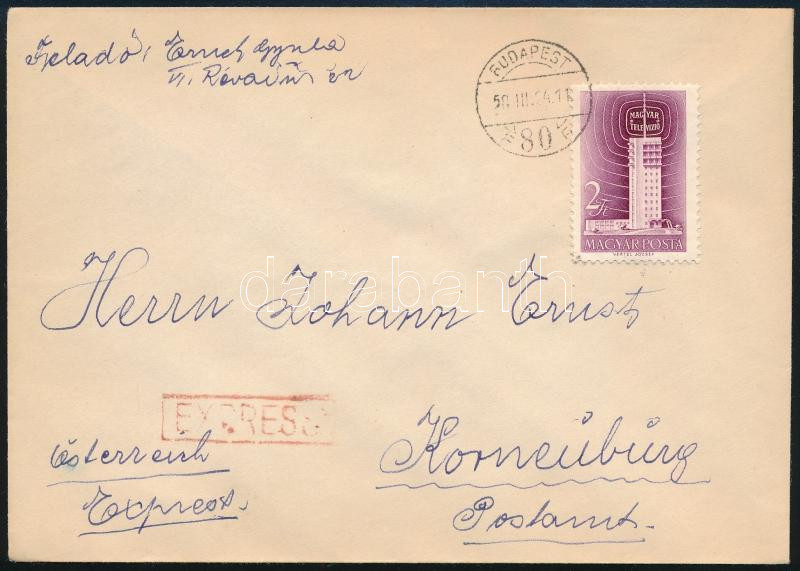 Feladó: Ernst Gyula
VI. Révai u.
BUDAPEST
58.III.24.
80
MAGYAR
TELEVIZIÓ
2 Ft
MAGYAR POSTA
VERTEL JÓZSEF
darabanth
Herrn Johann Ernst
EXPRESS
Österreich
Express.
Korneuburg
Postamt.